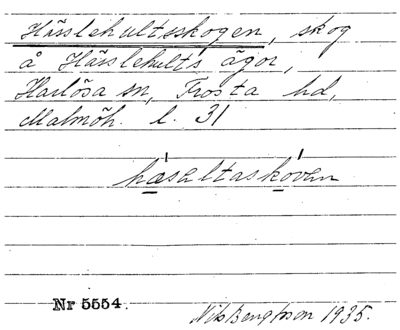 Hässlehultsskogen, skog
å Hässlehults ägor,
Harlösa sn, Frosta hd,
Malmöh. l. 31
hasaltaskovan
Nr 5554.
Nils Bengtsson 1935.